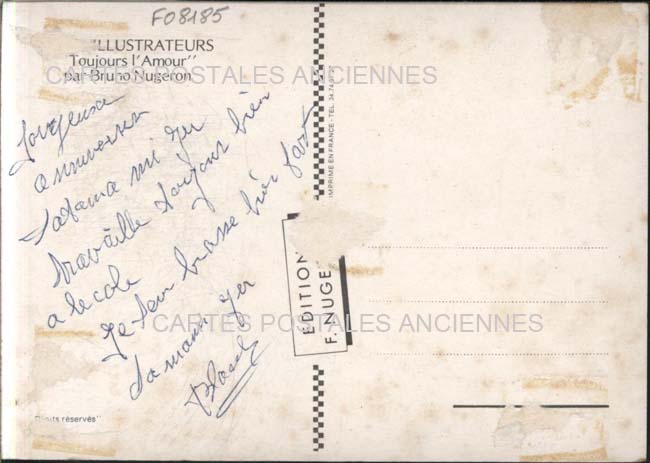 F08185
ILLUSTRATEURS
Toujours l'Amour"
par Bruno Nugeron
CARTES POSTALES ANCIENNES
Joyeuse
anniverser
travaille toujour bien
a lecole
Je brasse bien fort
sa maman
IMPRIMÉ EN FRANCE - TEL. 34.74
ÉDITION
F. NUGE
CARTES POSTALES ANCIENNES
Droits réservés"